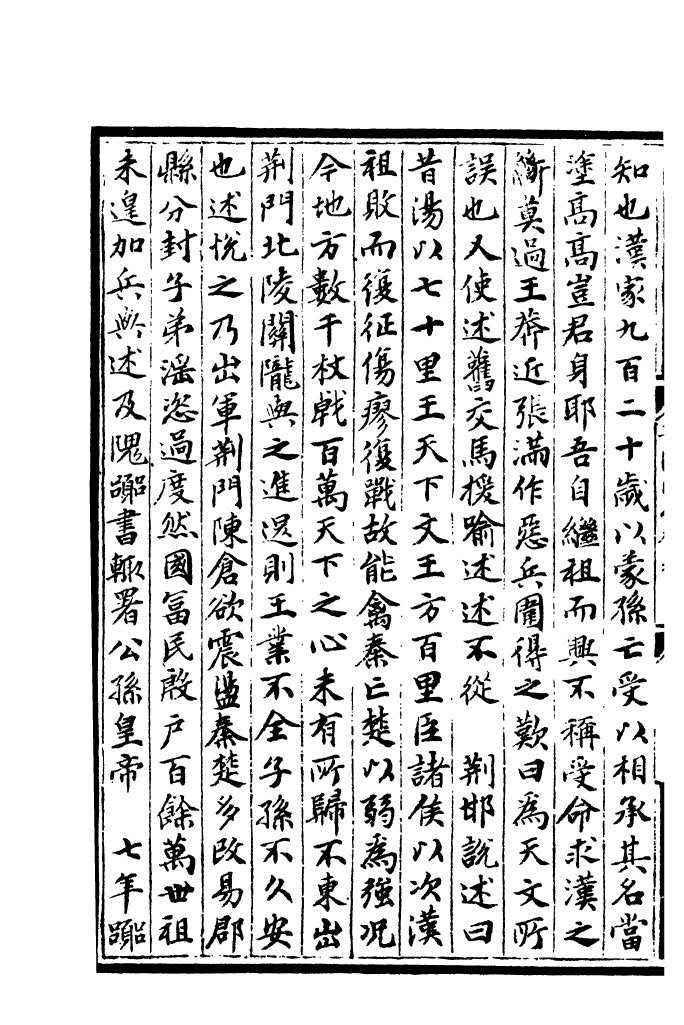 知也漢家九百二十歲以蒙孫亡受以相承其名當
塗高高豈君身耶吾自繼祖而興不稱受命求漢之
斷莫過王莽近張滿作惡兵圍得之歎曰爲天文所
誤也又使述舊交馬援喻述述不從　荆邯説述曰
昔湯以七十里王天下文王方百里臣諸侯以次漢
祖敗而復征傷瘳復戰故能禽秦亡楚以弱爲強况
今地方數千杖戟百萬天下之心未有所歸不東出
荆門北陵關隴與之進退則王業不全子孫不久安
也述悦之乃出軍荆門陳倉欲震盪秦楚多改易郡
縣分封子弟滛恣過度然國富民殷户百餘萬世祖
未遑加兵與述及隗嚻書輙署公孫皇帝　七年嚻